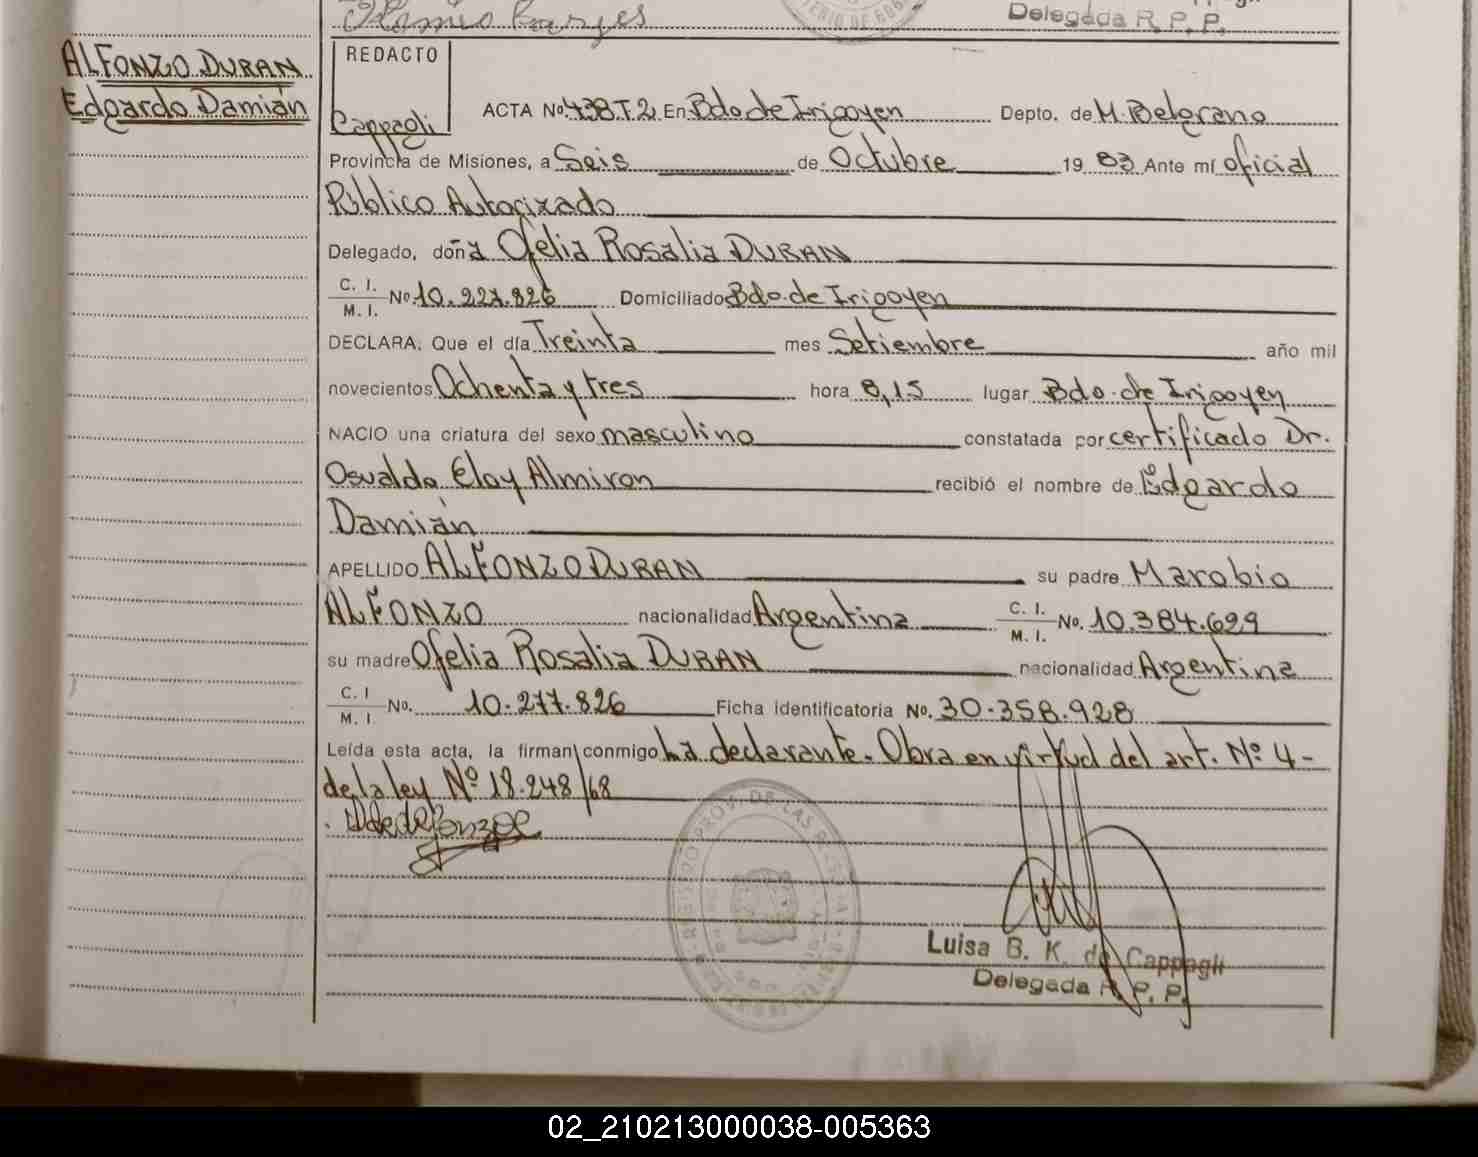 Delegada R. P. P.
ALFONZO DURAN
Edgardo Damián
REDACTO
Cappagli
ACTA No. 438 T 2 En Bdo de Irigoyen Depto. de M. Belgrano
Provincia de Misiones, a Seis de Octubre 19 83 Ante mí oficial
Público Autorizado
Delegado, doña Ofelia Rosalia DURAN
C. I.
M. I. No. 10.227.826 Domiciliado Bdo. de Irigoyen
DECLARA: Que el día Treinta mes Setiembre año mil
novecientos Ochenta y tres hora 8,15 lugar Bdo. de Irigoyen
NACIO una criatura del sexo masculino constatada por certificado Dr.
Osvaldo Eloy Almiron recibió el nombre de Edgardo
Damián
APELLIDO ALFONZO DURAN su padre Marobio
ALFONZO nacionalidad Argentina C. I.
M. I. No. 10.384.629
su madre Ofelia Rosalia DURAN nacionalidad Argentina
C. I
M. I. No. 10.277.826 Ficha identificatoria No. 30.358.928
Leída esta acta, la firman conmigo La declarante. Obra en virtud del art. Nº 4-
de la ley Nº 18.248/68
Luisa B. K. de Cappagli
Delegada R. P. P.
02_210213000038-005363